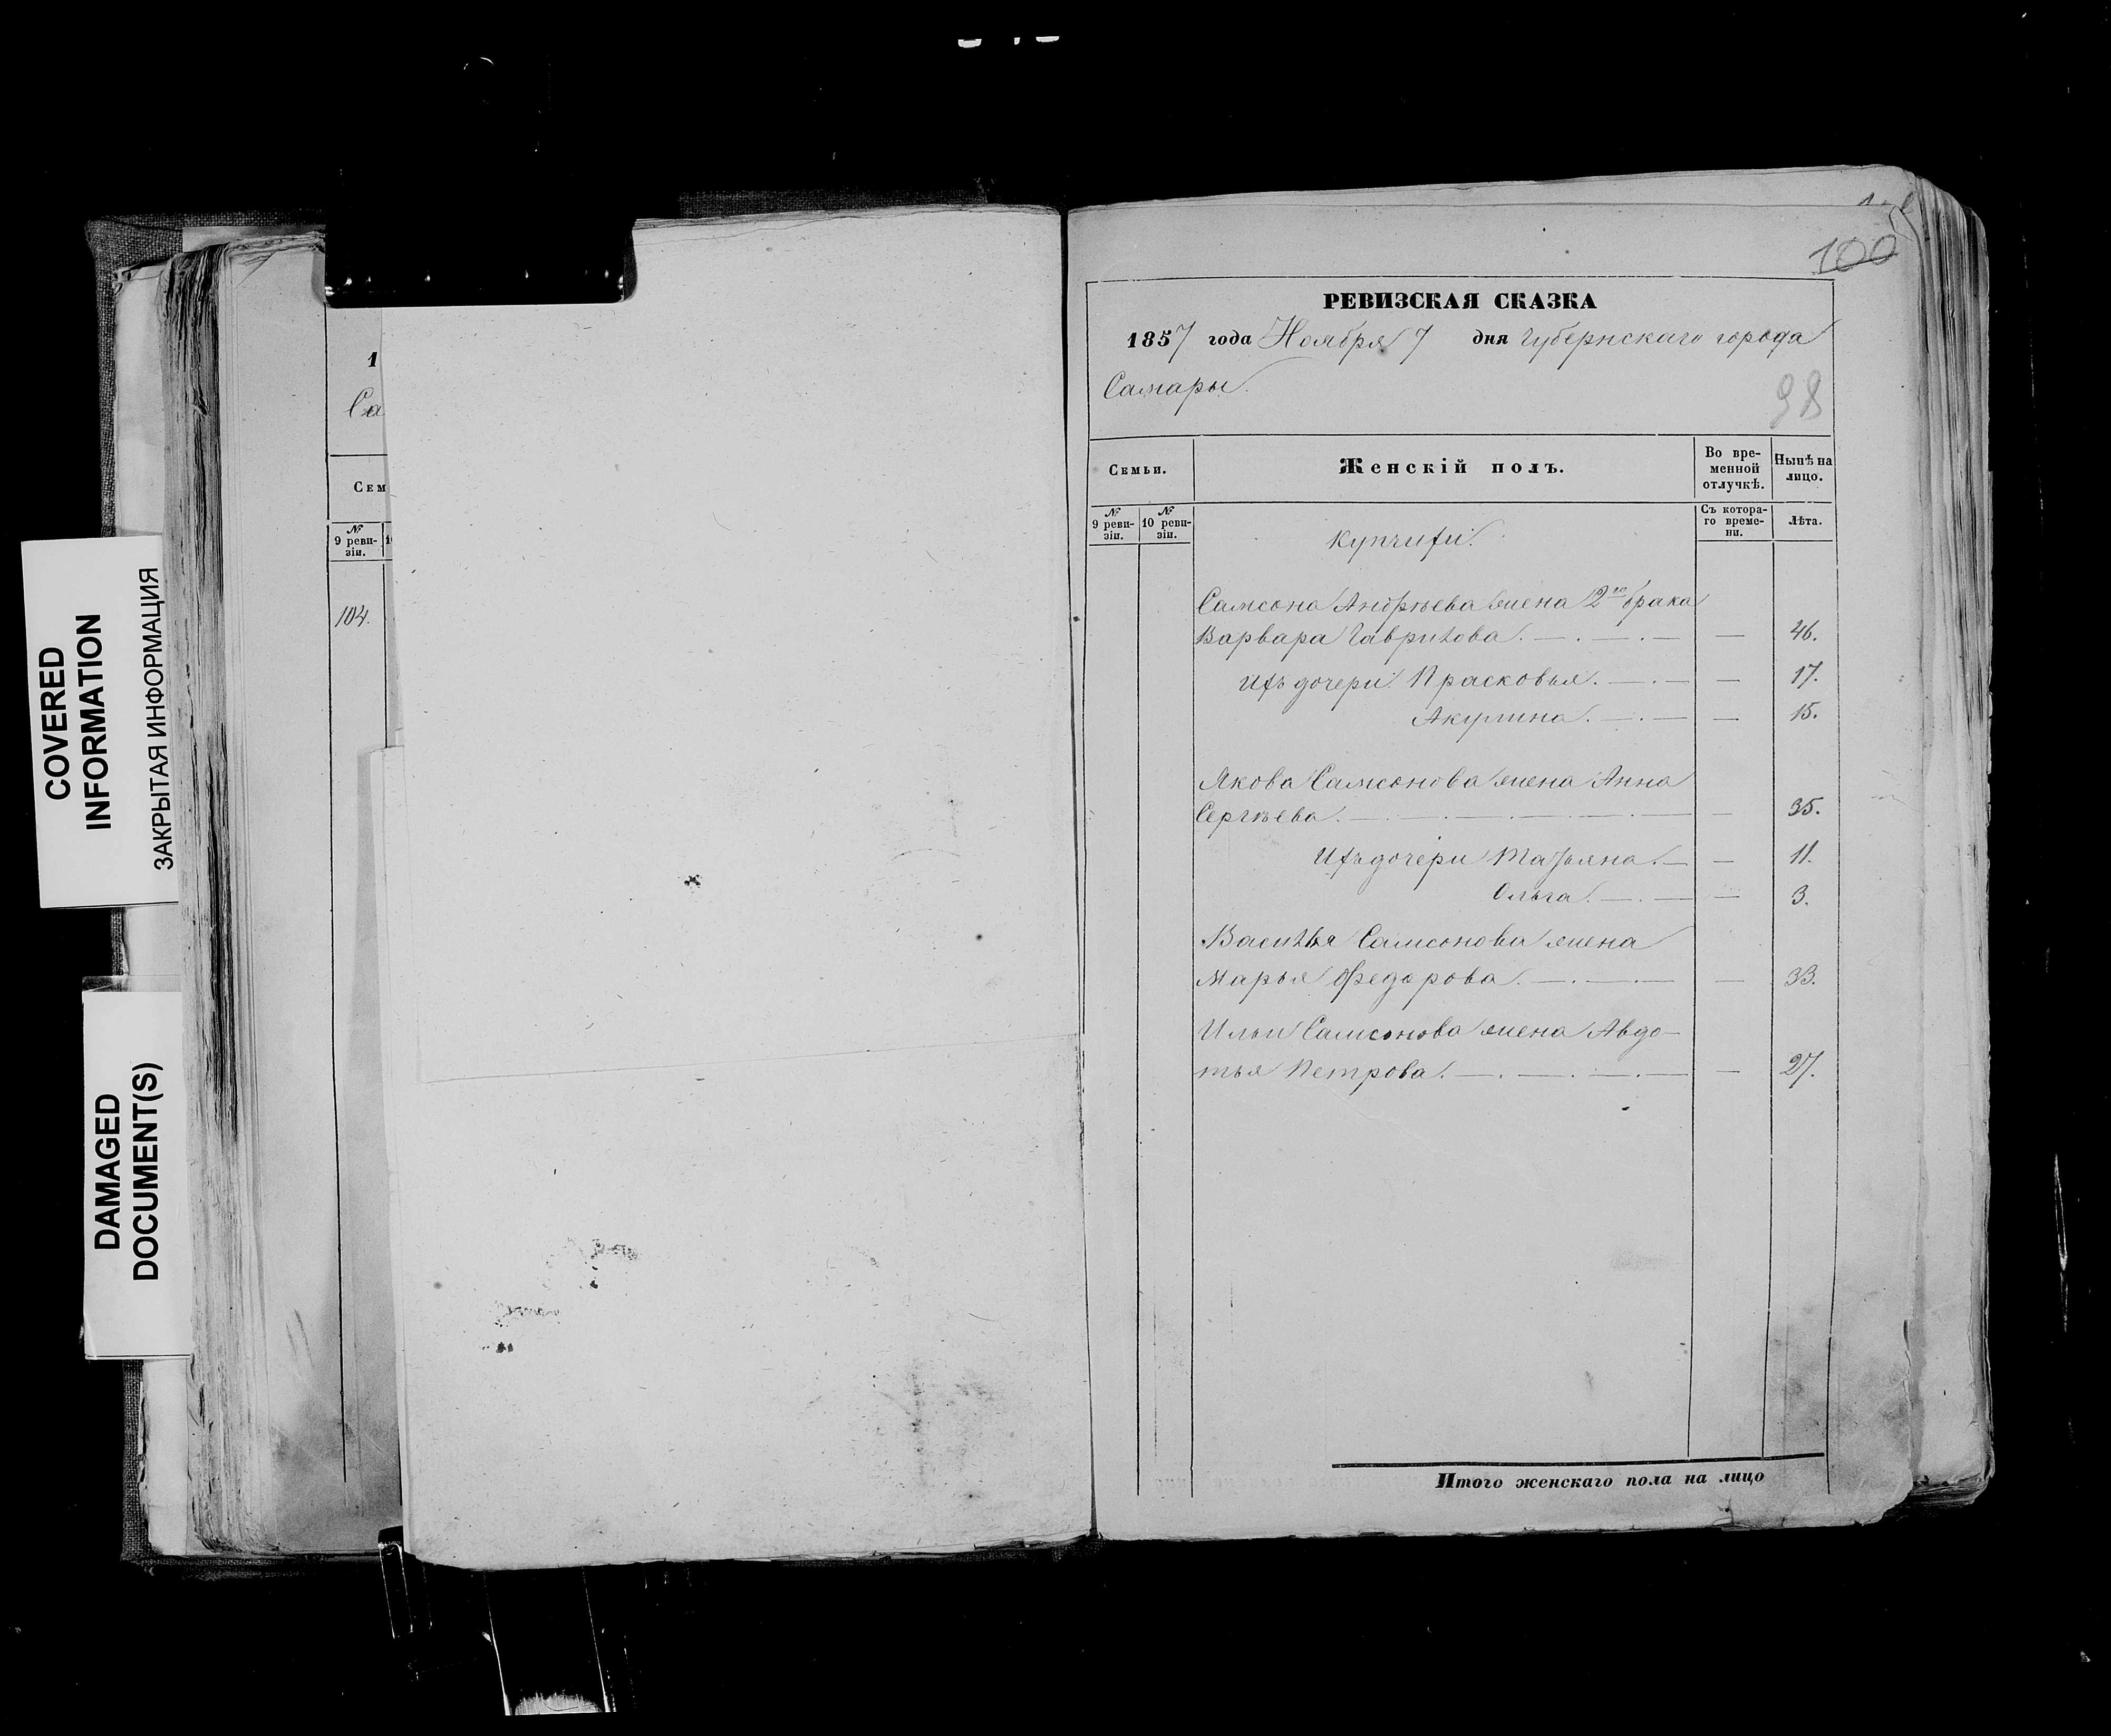 COVERED
INFORMATION
ЗАКРЫТАЯ ИНФОРМАЦИЯ
DAMAGED
DOCUMENT(S)
1
Са
Сем
№
9 реви-
зіи.
104.
100
РЕВИЗСКАЯ СКАЗКА
1857 года Ноября 7 дня Губернскаго города
Самары.
98
Семьи.
Женскій полъ.
Во вре-
менной
отлучкѣ.
Нынѣ на
лицо.
№
9 реви-
зіи.
№
10 реви-
зіи.
Съ котора-
го време-
ни.
Лѣта.
Купчихи.
Самсона Андрѣева жена 2го брака
Варвара Гаврилова. — 46.
Ихъ дочери Прасковья. — 17.
Акулина. — 15.
Якова Самсонова жена Анна
Сергѣева. — 35.
Ихъ дочери Татьяна. — 11.
Ольга. — 3.
Василья Самсонова жена
Марья Федорова. — 33.
Ильи Самсонова жена Авдо-
тья Петрова. — 27.
Итого женскаго пола на лицо